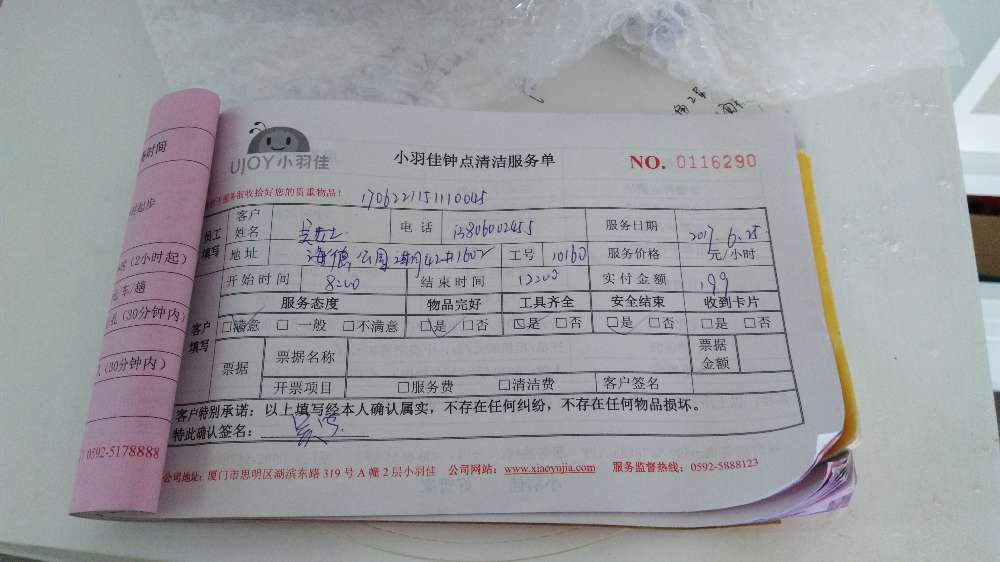 UJOY小羽佳
小羽佳钟点清洁服务单
NO. 0116290
收拾好您的贵重物品！
1706221151110045
员工填写
客户姓名
电话 13806002455
服务日期 2017.6.25
地址
1602
工号 10160
服务价格 元/小时
开始时间 8:00
结束时间 12:00
实付金额 199
客户填写
服务态度 物品完好 工具齐全 安全结束 收到卡片
□满意 □一般 □不满意 □是 □否 □是 □否 □是 □否 □是 □否
票据
票据名称
票据金额
开票项目 □服务费 □清洁费 客户签名
客户特别承诺：以上填写经本人确认属实，不存在任何纠纷，不存在任何物品损坏。
特此确认签名：
公司地址：厦门市思明区湖滨东路 319 号 A 幢 2 层小羽佳 公司网站：www.xiaoyujia.com 服务监督热线：0592-5888123
时间
起步
(2小时起)
车/趟
(30分钟内)
(30分钟内)
0592-5178888